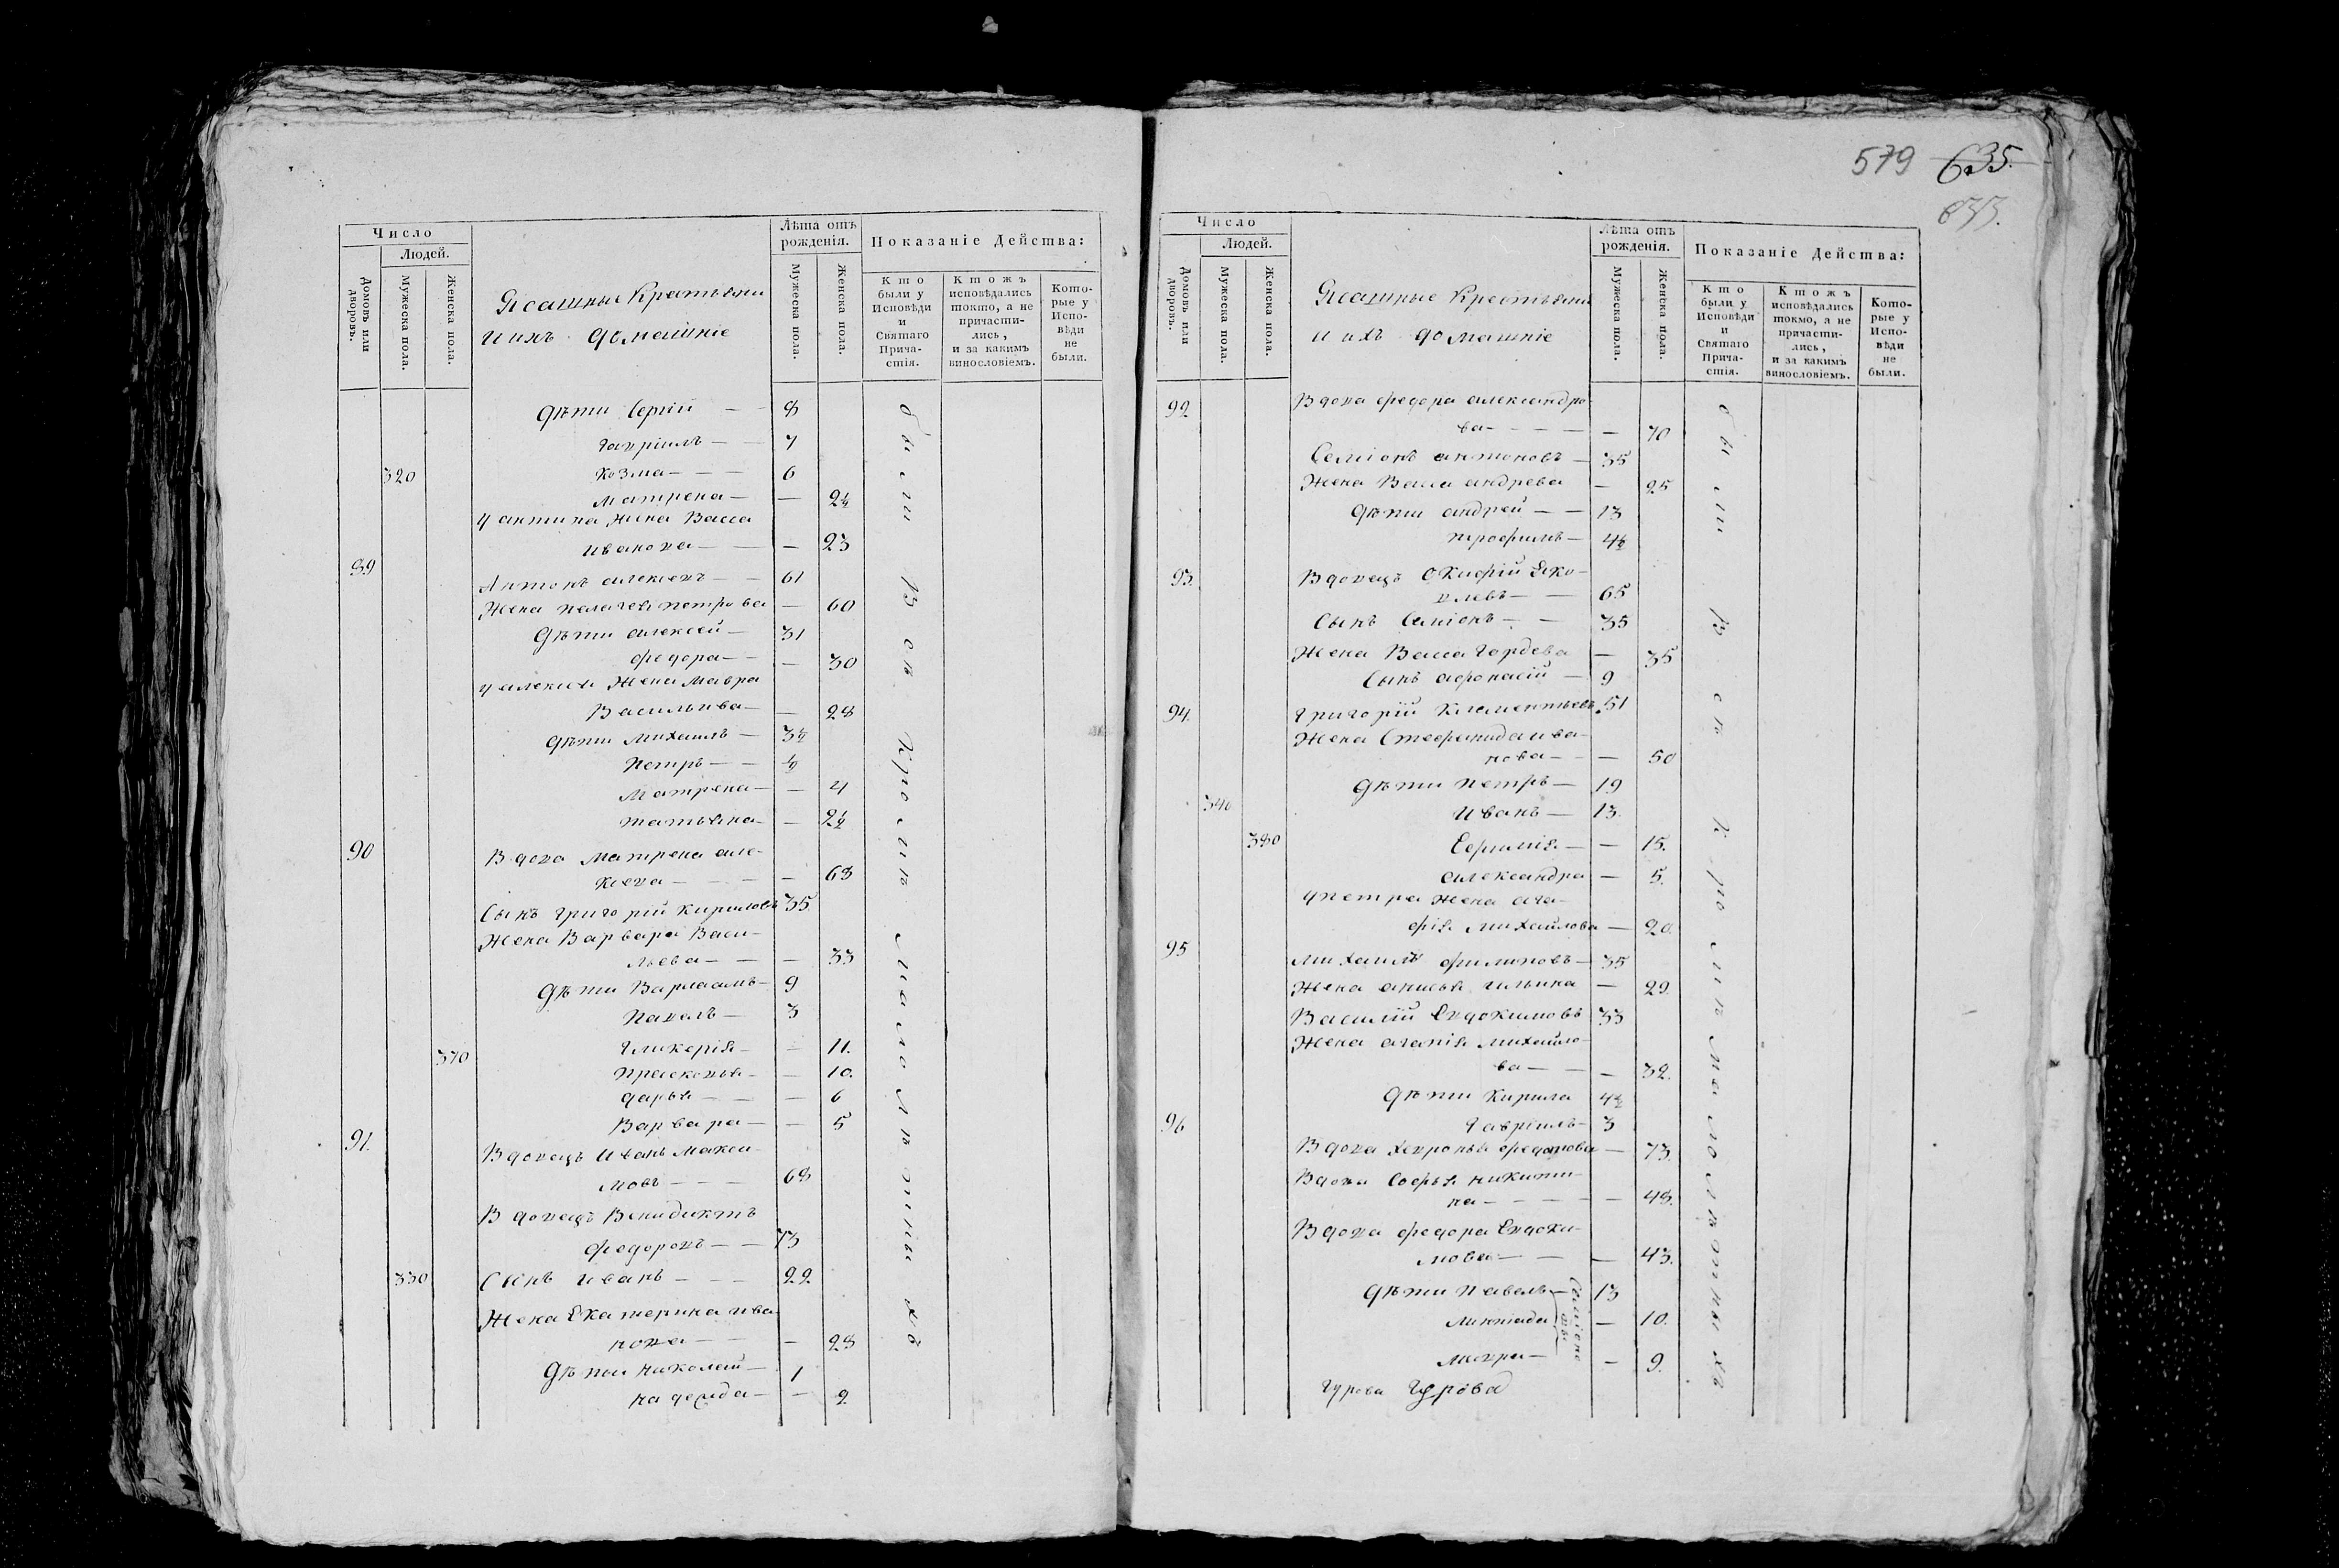 579 635.
633.
Число
Людей.
Домовъ или дворовъ.
Мужеска пола.
Женска пола.
Ясашные Крестьяни
и ихъ домашніе
Лѣта отъ рожденія.
Мужеска пола.
Женска пола.
Показаніе Действа:
Кто были у Исповѣди и Святаго Причастія.
Ктожъ исповѣдались токмо, а не причастились, и за какимъ винословіемъ.
Которые у Исповѣди не были.
дѣти Сергій — 8
Гаврiилъ — 7
320 Козма — 6
Матрена — — 2½
у антипа жена Васса
иванова — — 23
89 Антонъ алексеевъ — 61
Жена пелагея петрова — 60
дѣти алексей — 31
федора — — 30
у алексея Жена Мавра
Васильива — — 28
дѣти Михаилъ — 3½
Петръ — ½
Матрена — — 4
татьяна — — 2½
90 Вдова Матрена але-
ксева — — 68
Сынъ григорій Кириловъ 35
Жена Варвара Васи-
льева — — 33
дѣти Варлаамъ — 9
Павелъ — 3
370 гликерія — — 11.
Прасковья — — 10.
дарья — — 6
Варвара — — 5
91. Вдовецъ Иванъ Макси-
мовъ — 68
Вдовецъ Венидиктъ
Федоровъ — 73
330 Сынъ иванъ — 22
Жена Екатерина ива-
нова — — 28
дѣти николай — 1
надежда — — 2
были Всѣ Кромѣ малолѣтныхъ
Число
Людей.
Домовъ или дворовъ.
Мужеска пола.
Женска пола.
Ясашные Крестьяни
и ихъ домашніе
Лѣта отъ рожденія.
Мужеска пола.
Женска пола.
Показаніе Действа:
Кто были у Исповѣди и Святаго Причастія.
Ктожъ исповѣдались токмо, а не причастились, и за какимъ винословіемъ.
Которые у Исповѣди не были.
92 Вдова федора александро-
ва — — 70
Семіонъ антоновъ — 35
Жена Васса андрева — 25
дѣти андрей — 13
трофимъ — 4½
93. Вдовецъ Окифрій Яко-
влевъ — 65
Сынъ Семіонъ — 35
Жена Васса гордева — 35
Сынъ афонасій — 9
94. григорій Клементьевъ 51
Жена Стефанида ива-
нова — — 50
дѣти петръ — 19
340 Иванъ — 13.
380 Ефимія — — 15.
александра — 5.
у петра жена ага-
фія Михайлова — 20.
95 михаилъ филиповъ — 35
Жена анисья ильина — 29.
Василій Евдокимовъ 33
Жена агапія михайло-
ва — — 32.
дѣти Кирила 4½
Гавріилъ — 3
96 Вдова Хевронья федотова — 73.
Вдова Софья никити-
на — — 48.
Вдова федора Евдоки-
мова — — 43.
дѣти павелъ — 13
— 10.
Мавра — — 9.
гурова Гурова
были Всѣ Кромѣ малолѣтныхъ